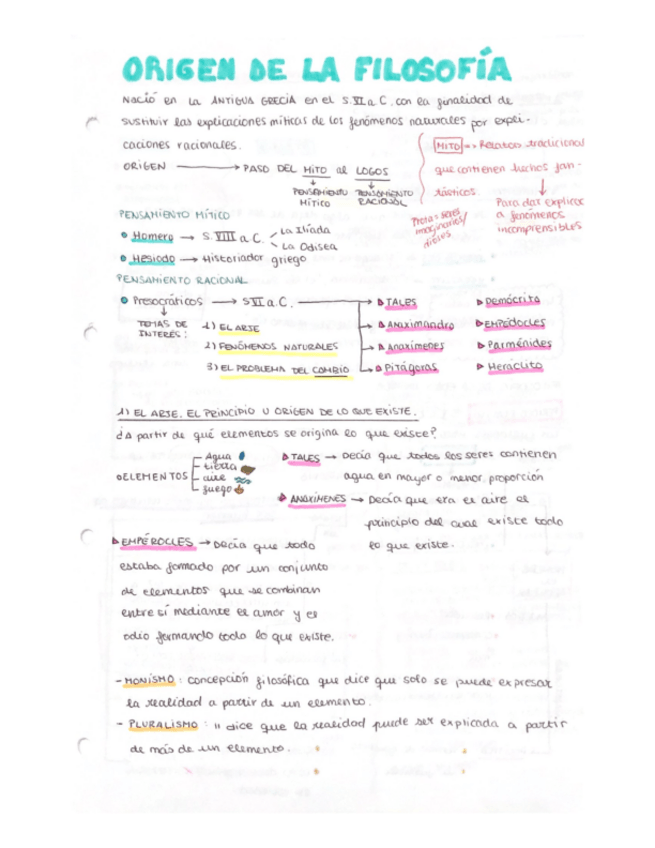 ORIGEN DE LA FILOSOFÍA
Nació en la ANTIGUA GRECIA en el S.VI a.C. con la finalidad de
sustituir las explicaciones míticas de los fenómenos naturales por expli-
caciones racionales.
MITO => Relatos tradicional
que contienen hechos fan-
tásticos.
Para dar explicac
a fenómenos
incomprensibles
Prota= seres
imaginarios/
dioses
ORIGEN → PASO DEL MITO al LOGOS
PENSAMIENTO MÍTICO
PENSAMIENTO RACIONAL
PENSAMIENTO MÍTICO
Homero → S. VIII a.C.
La Ilíada
La Odisea
Hesíodo → Historiador griego
PENSAMIENTO RACIONAL
Presocráticos → S VI a.C.
TEMAS DE INTERÉS:
1) EL ARJE
2) FENÓMENOS NATURALES
3) EL PROBLEMA DEL CAMBIO
TALES
Anaximandro
Anaxímenes
Pitágoras
Demócrito
EMPÉDOCLES
Parménides
Heráclito
1) EL ARJE. EL PRINCIPIO U ORIGEN DE LO QUE EXISTE.
¿A partir de qué elementos se origina lo que existe?
ELEMENTOS
Agua
tierra
aire
fuego
TALES → Decía que todos los seres contienen
agua en mayor o menor proporción
ANAXÍMENES → Decía que era el aire el
principio del cual existe todo
lo que existe.
EMPÉROCLES → Decía que todo
estaba formado por un conjunto
de elementos que se combinan
entre sí mediante el amor y el
odio formando todo lo que existe.
- MONISMO: concepción filosófica que dice que solo se puede expresar
la realidad a partir de un elemento.
- PLURALISMO: " dice que la realidad puede ser explicada a partir
de más de un elemento.